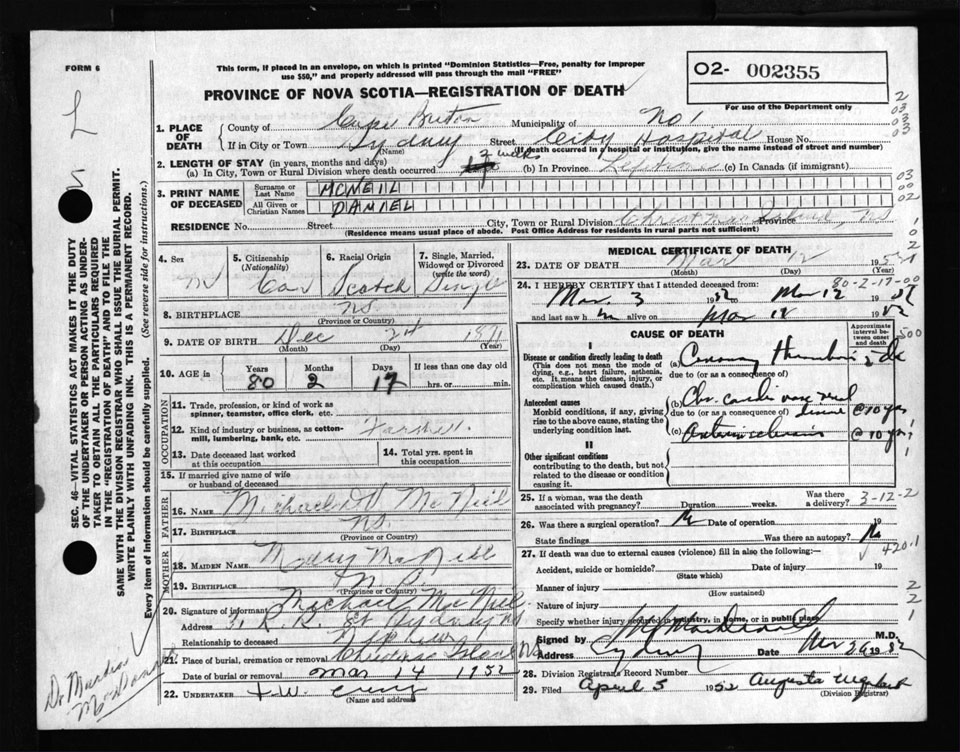 FORM 6
This form, if placed in an envelope, on which is printed "Dominion Statistics—Free, penalty for improper
use $50," and properly addressed will pass through the mail "FREE"
O2- 002355
For use of the Department only
PROVINCE OF NOVA SCOTIA—REGISTRATION OF DEATH
1. PLACE OF DEATH
County of Cape Breton Municipality of No 1
If in City or Town Sydney Street City Hospital House No.
(Name) (If death occurred in a hospital or institution, give the name instead of street and number)
2. LENGTH OF STAY (in years, months and days)
(a) In City, Town or Rural Division where death occurred 2 weeks (b) In Province Lifetime (c) In Canada (if immigrant)
3. PRINT NAME OF DECEASED
Surname or Last Name MCNEIL
All Given or Christian Names DANIEL
RESIDENCE No. Street City, Town or Rural Division Christmas Island Province NS
(Residence means usual place of abode. Post Office Address for residents in rural parts not sufficient)
4. Sex M
5. Citizenship (Nationality) Can
6. Racial Origin Scotch
7. Single, Married, Widowed or Divorced (write the word) Single
8. BIRTHPLACE NS.
(Province or Country)
9. DATE OF BIRTH Dec 24 1871
(Month) (Day) (Year)
10. AGE in Years 80 Months 2 Days 17 If less than one day old hrs. or min.
OCCUPATION
11. Trade, profession, or kind of work as spinner, teamster, office clerk, etc.
12. Kind of industry or business, as cotton-mill, lumbering, bank, etc. Farmer.
13. Date deceased last worked at this occupation
14. Total yrs. spent in this occupation
15. If married give name of wife or husband of deceased
FATHER
16. NAME Michael McNeil
17. BIRTHPLACE NS.
(Province or Country)
MOTHER
18. MAIDEN NAME Mary McNeil
19. BIRTHPLACE
(Province or Country)
20. Signature of informant Michael McNeil
Address Sydney NS
Relationship to deceased Nephew
21. Place of burial, cremation or removal Christmas Island NS
Date of burial or removal Mar 14 1952
22. UNDERTAKER T.W. Curry
(Name and address)
MEDICAL CERTIFICATE OF DEATH
23. DATE OF DEATH Mar 12 1952
(Month) (Day) (Year)
80-2-17-00
24. I HEREBY CERTIFY that I attended deceased from:
Mar 3 1952 to Mar 12 1952
and last saw him alive on Mar 12 1952
CAUSE OF DEATH
Approximate interval between onset and death
I
Disease or condition directly leading to death
(This does not mean the mode of dying, e.g., heart failure, asthenia, etc. It means the disease, injury, or complication which caused death.)
(a) Coronary Thrombosis
due to (or as a consequence of)
Antecedent causes
Morbid conditions, if any, giving rise to the above cause, stating the underlying condition last.
(b) Chr. cardio vascular disease @ 10 yrs
due to (or as a consequence of)
(c) Arteriosclerosis @ 10 yrs
II
Other significant conditions
contributing to the death, but not related to the disease or condition causing it.
25. If a woman, was the death associated with pregnancy? Duration weeks. Was there a delivery?
3-12-2
26. Was there a surgical operation? No Date of operation 19
State findings Was there an autopsy? No
420.1
27. If death was due to external causes (violence) fill in also the following:—
Accident, suicide or homicide? Date of injury 19
(State which)
Manner of injury
(How sustained)
Nature of injury
Specify whether injury occurred in industry, in home, or in public place
Signed by M.D.
Address Sydney Date 1952
28. Division Registrar's Record Number
29. Filed April 5 1952 Augusta
(Division Registrar)
SEC. 46—VITAL STATISTICS ACT MAKES IT THE DUTY
OF THE UNDERTAKER OR PERSON ACTING AS UNDER-
TAKER TO OBTAIN ALL THE PARTICULARS REQUIRED
IN THE "REGISTRATION OF DEATH" AND TO FILE THE
SAME WITH THE DIVISION REGISTRAR WHO SHALL ISSUE THE BURIAL PERMIT.
WRITE PLAINLY WITH UNFADING INK. THIS IS A PERMANENT RECORD.
Every item of information should be carefully supplied. (See reverse side for instructions.)